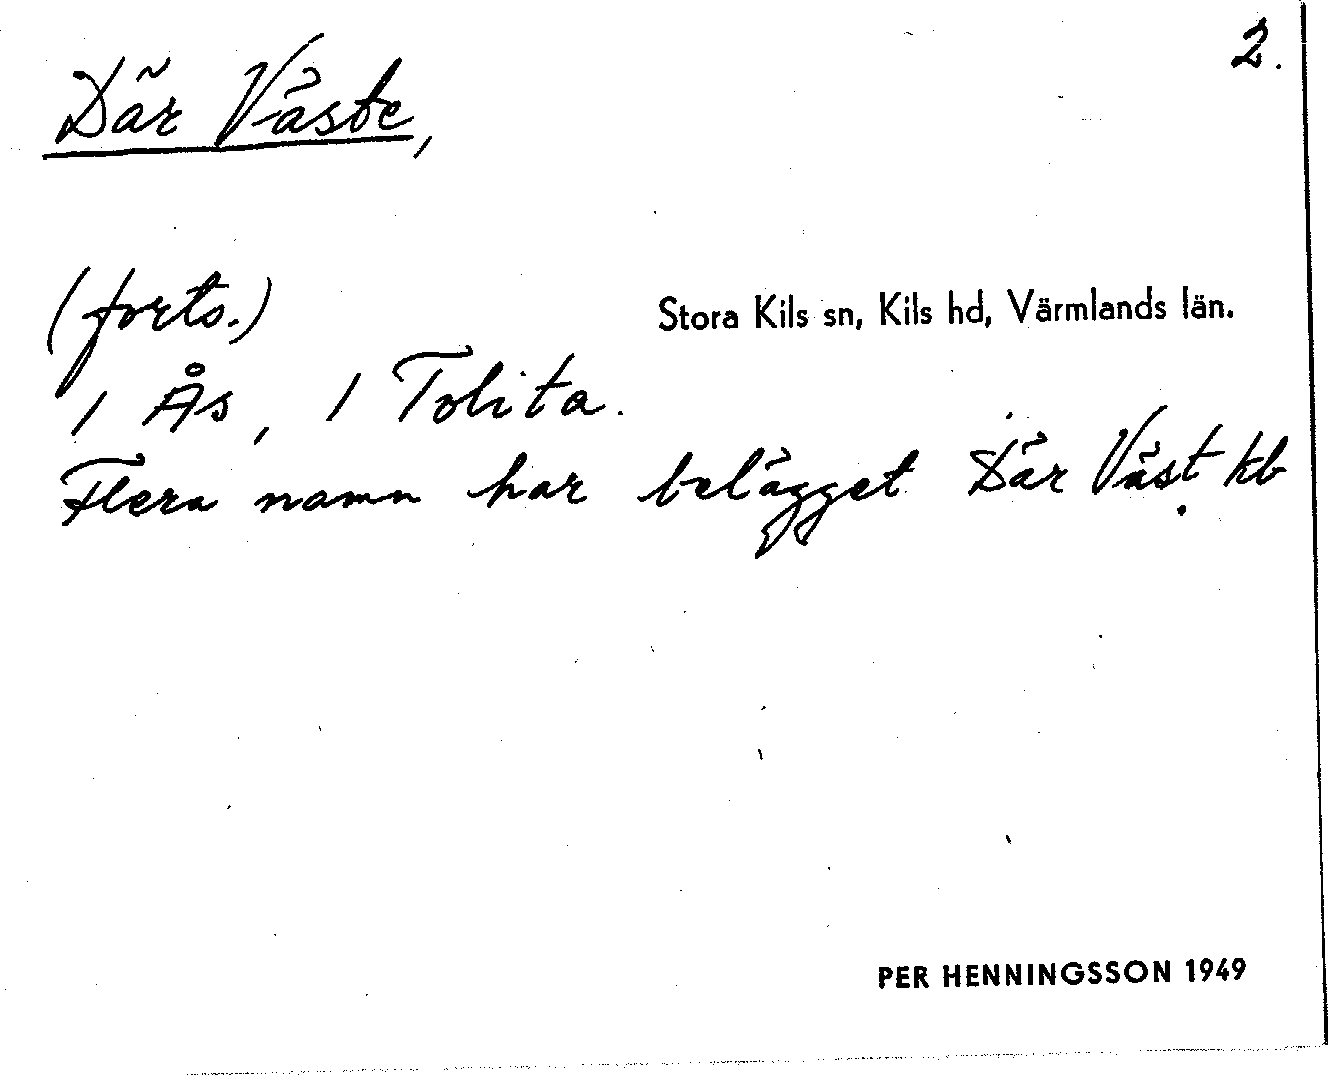 2.
Där Väste,
(forts.)
Stora Kils sn, Kils hd, Värmlands län.
1 Ås, 1 Tolita.
Flera namn har belägget Där Väst kb
PER HENNINGSSON 1949